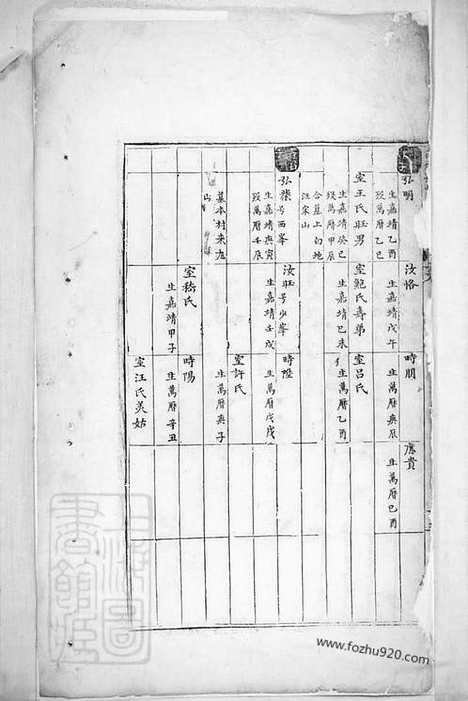 弘明
生嘉靖乙酉
歿萬曆乙巳
室王氏旺男
生嘉靖癸巳
歿萬曆甲辰
合墓上向地
汪宋山
弘
号西峯
生嘉靖庚寅
歿萬曆壬辰
墓本村来左
山
汝恪
生嘉靖戊午
室鮑氏壽弟
生嘉靖己未
汝旺号少峯
生嘉靖壬戌
室嵇氏
生嘉靖甲子
時朋
生萬曆庚辰
室呂氏
生萬曆乙酉
時隥
生萬曆戊戌
室許氏
生萬曆庚子
時陽
生萬曆辛丑
室汪氏美姑
應貴
生萬曆己酉
上海圖書館藏
www.fozhu920.com